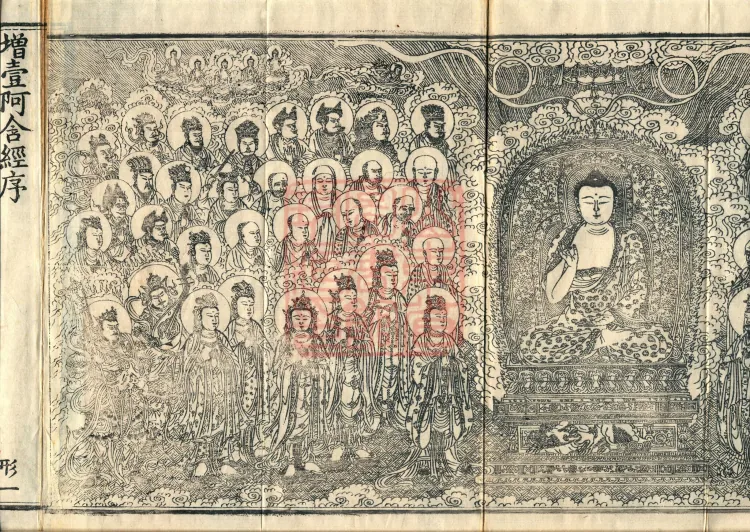 增壹阿含經序
形一